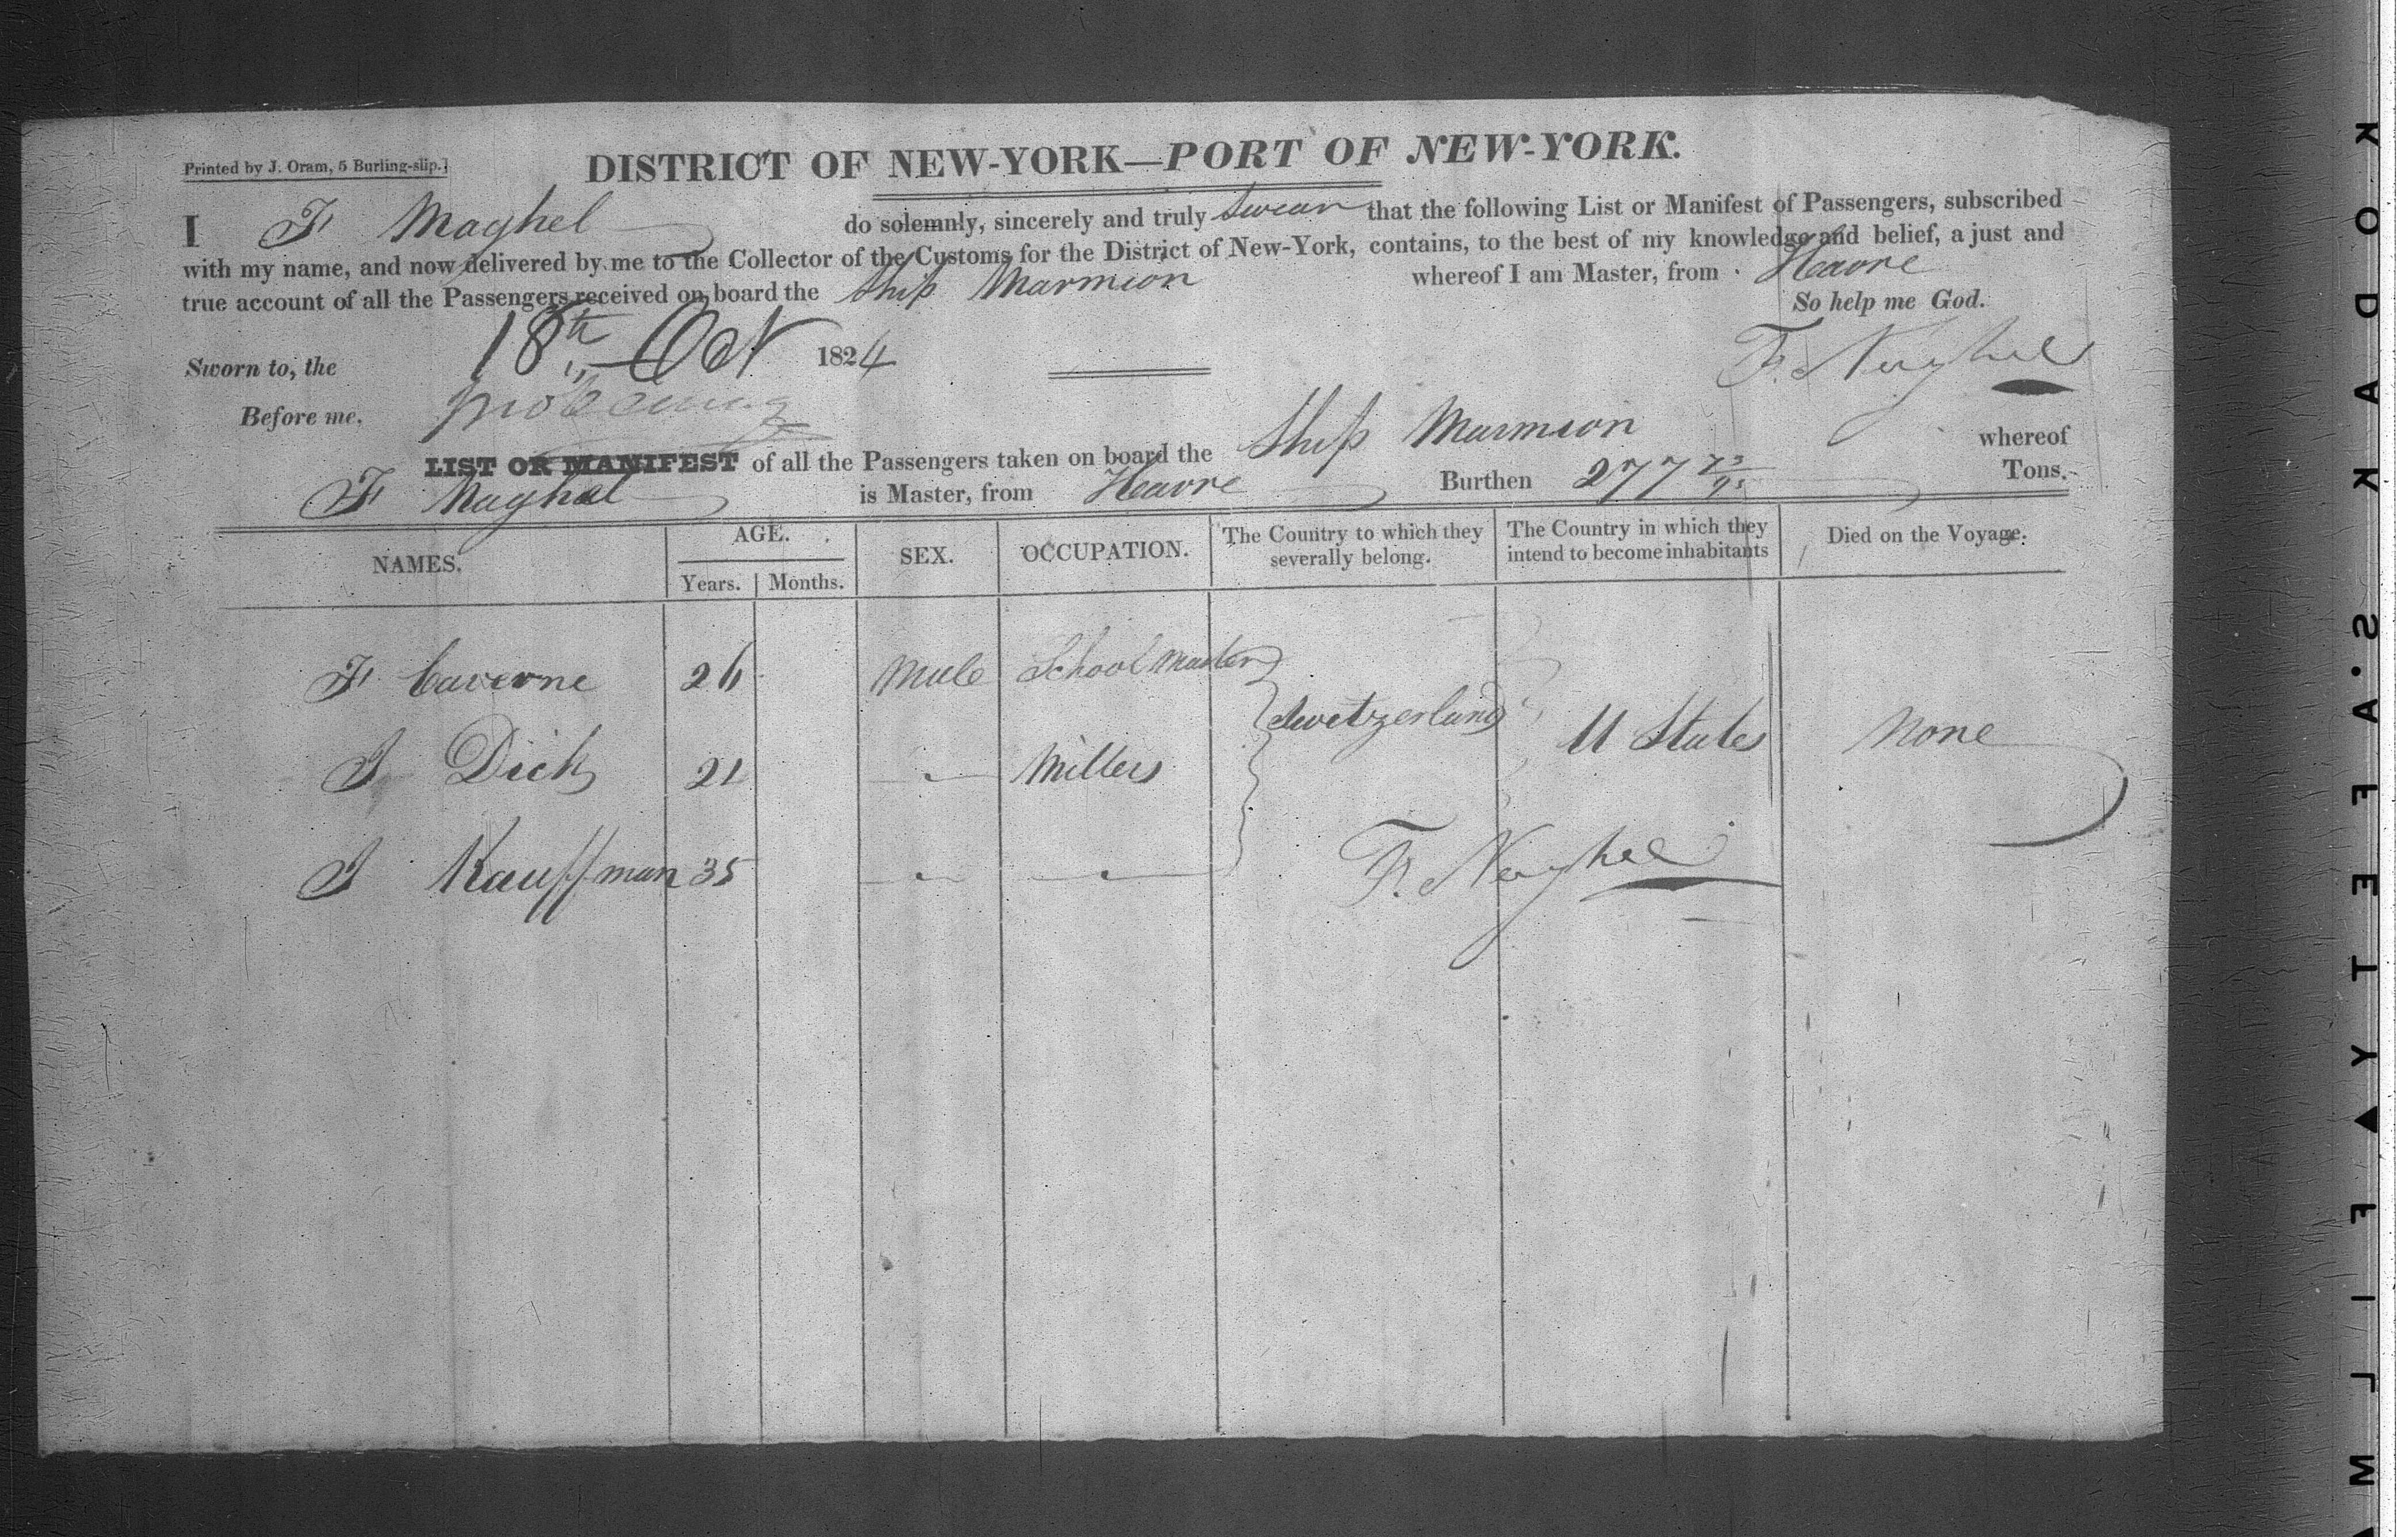 Printed by J. Oram, 5 Burling-slip.]
DISTRICT OF NEW-YORK—PORT OF NEW-YORK.
I F Maghel do solemnly, sincerely and truly Swear that the following List or Manifest of Passengers, subscribed
with my name, and now delivered by me to the Collector of the Customs for the District of New-York, contains, to the best of my knowledge and belief, a just and
true account of all the Passengers received on board the Ship Marmion whereof I am Master, from Havre
So help me God.
Sworn to, the 18th Oct 1824
F. Naghel
Before me,
LIST OR MANIFEST of all the Passengers taken on board the Ship Marmion whereof
F Naghel is Master, from Havre Burthen 277 73/95 Tons.
NAMES. AGE. SEX. OCCUPATION. The Country to which they severally belong. The Country in which they intend to become inhabitants Died on the Voyage.
Years. Months.
F Caverne 26 Male School Master
Switzerland U States None
J Dick 21 Millers
J Kauffman 35
F. Naghel
KODAK SAFETY FILM